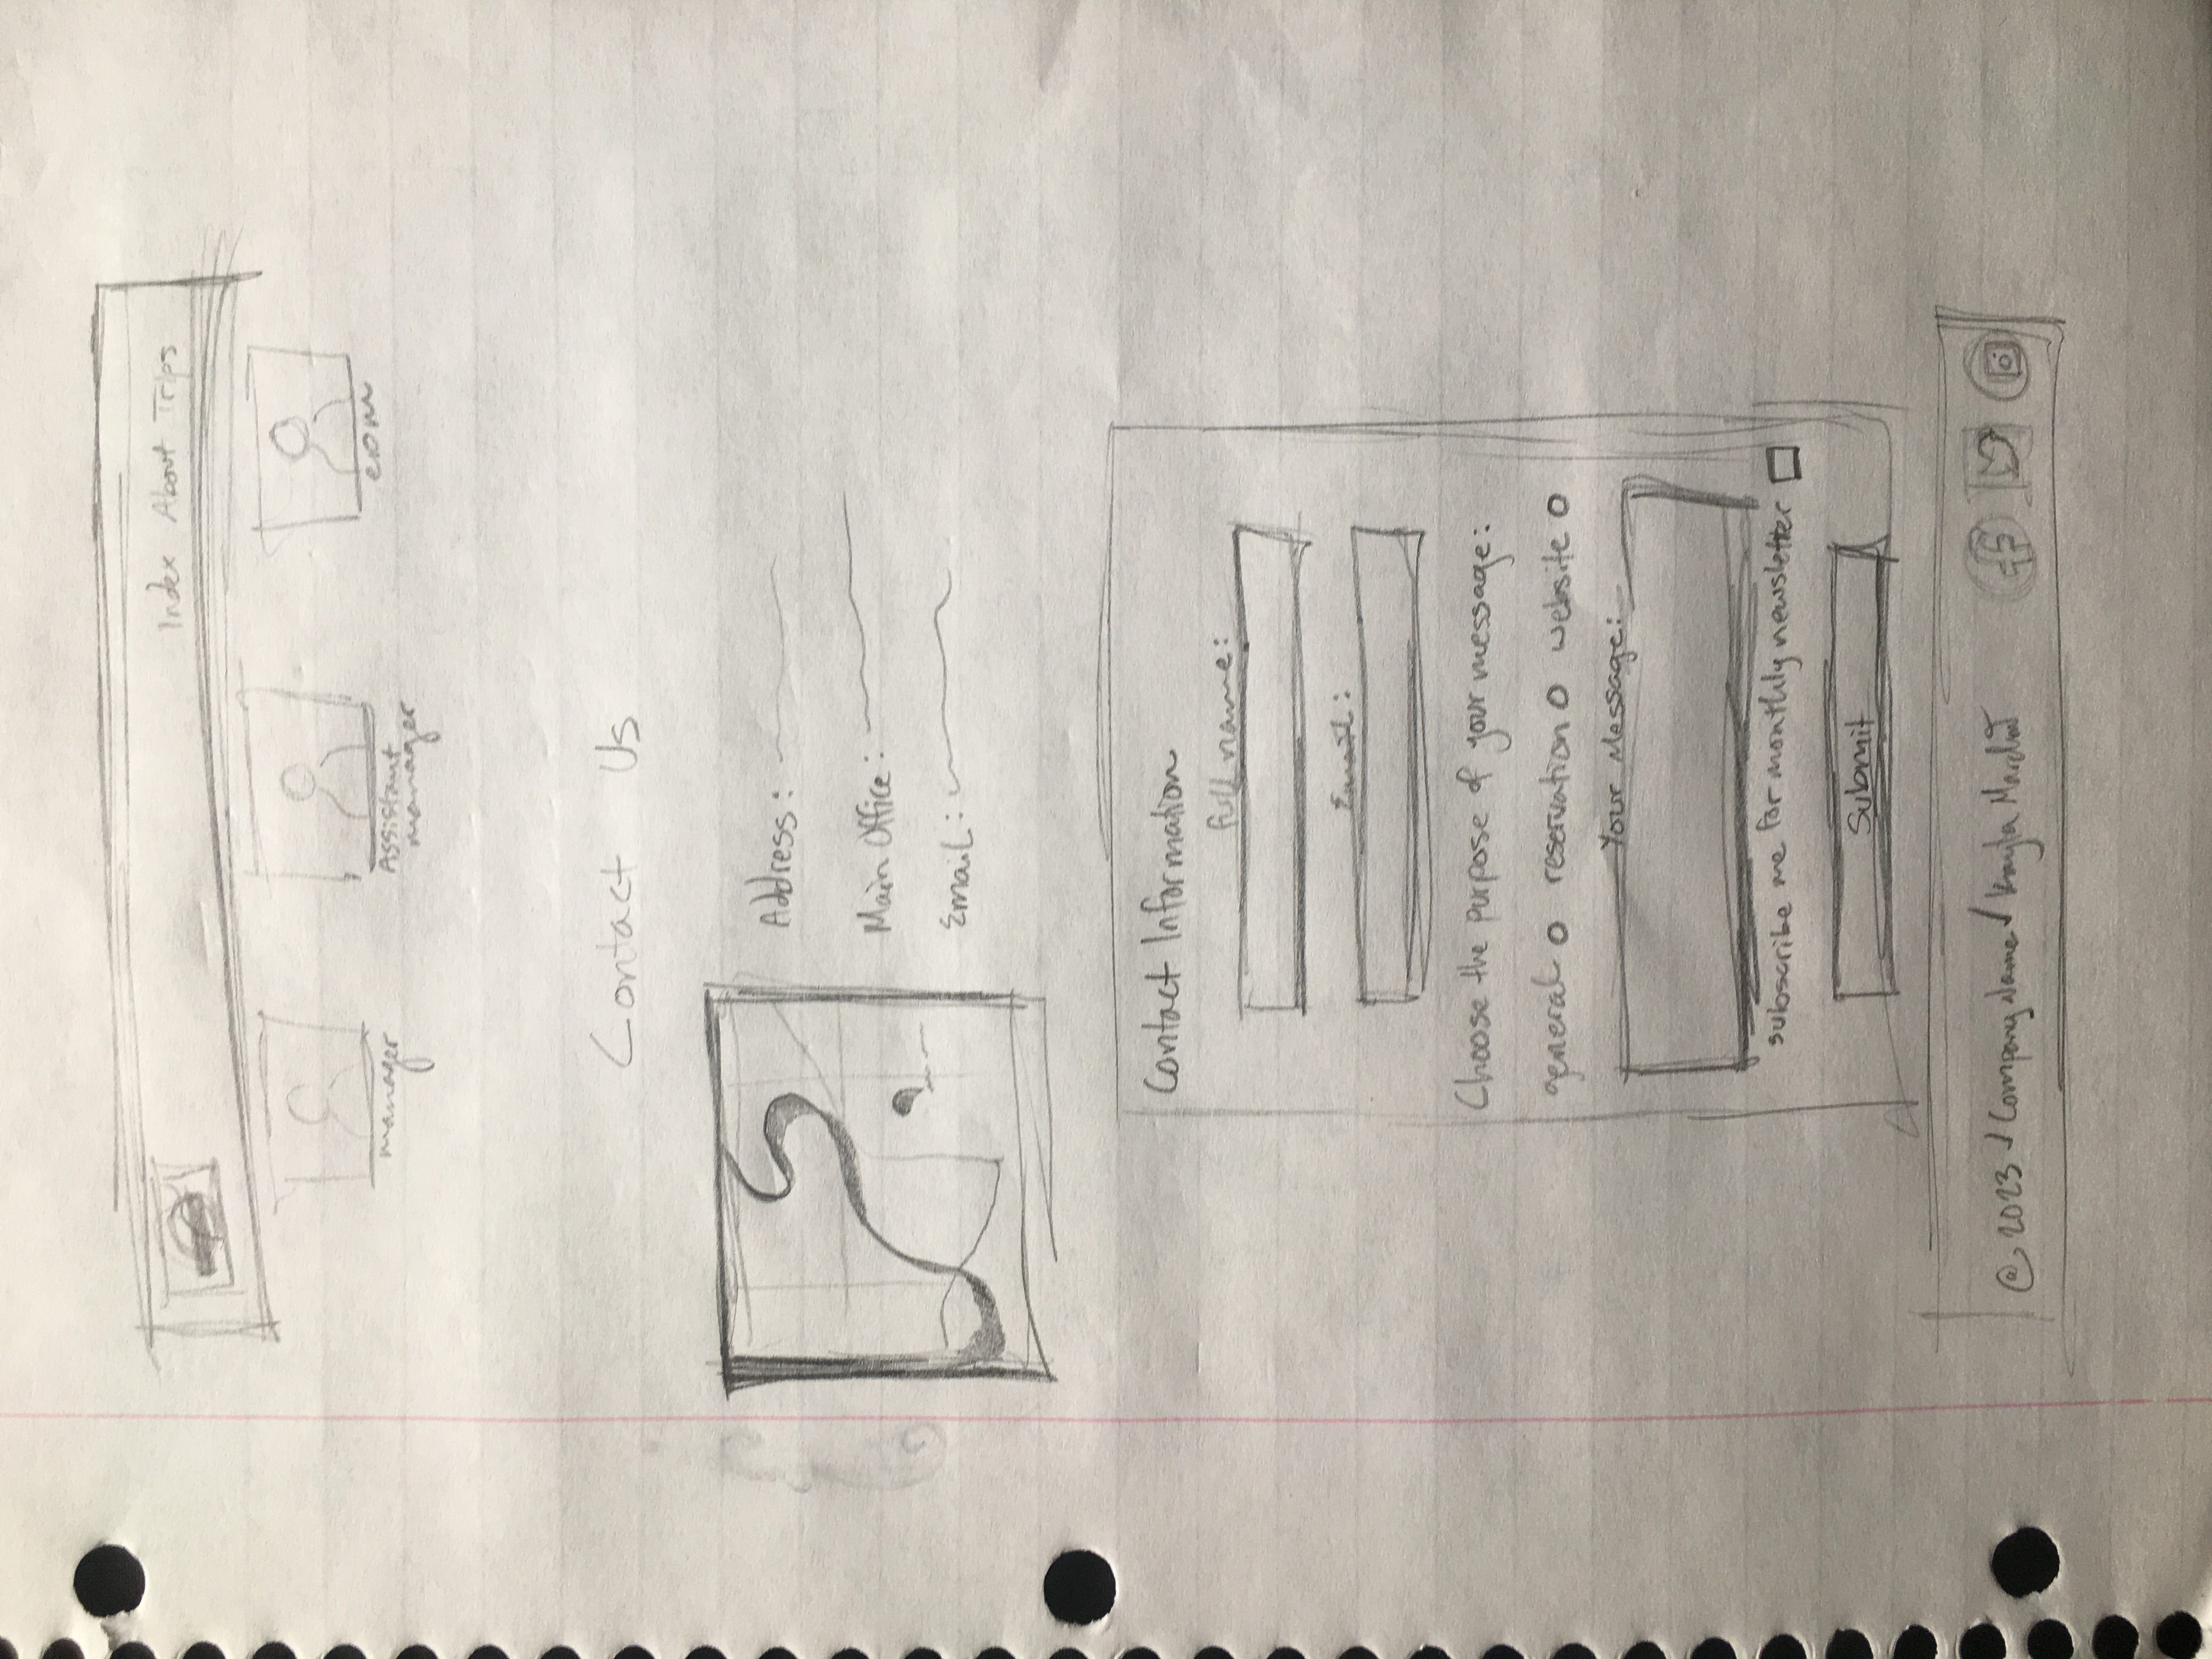 Index About Trips
manager
Assistant
manager
Contact Us
Address:
Main Office:
Email:
Contact Information
full name:
Email:
Choose the purpose of your message:
general reservation website
Your Message:
subscribe me for monthly newsletter
Submit
© 2023 / Company Name / Kayla